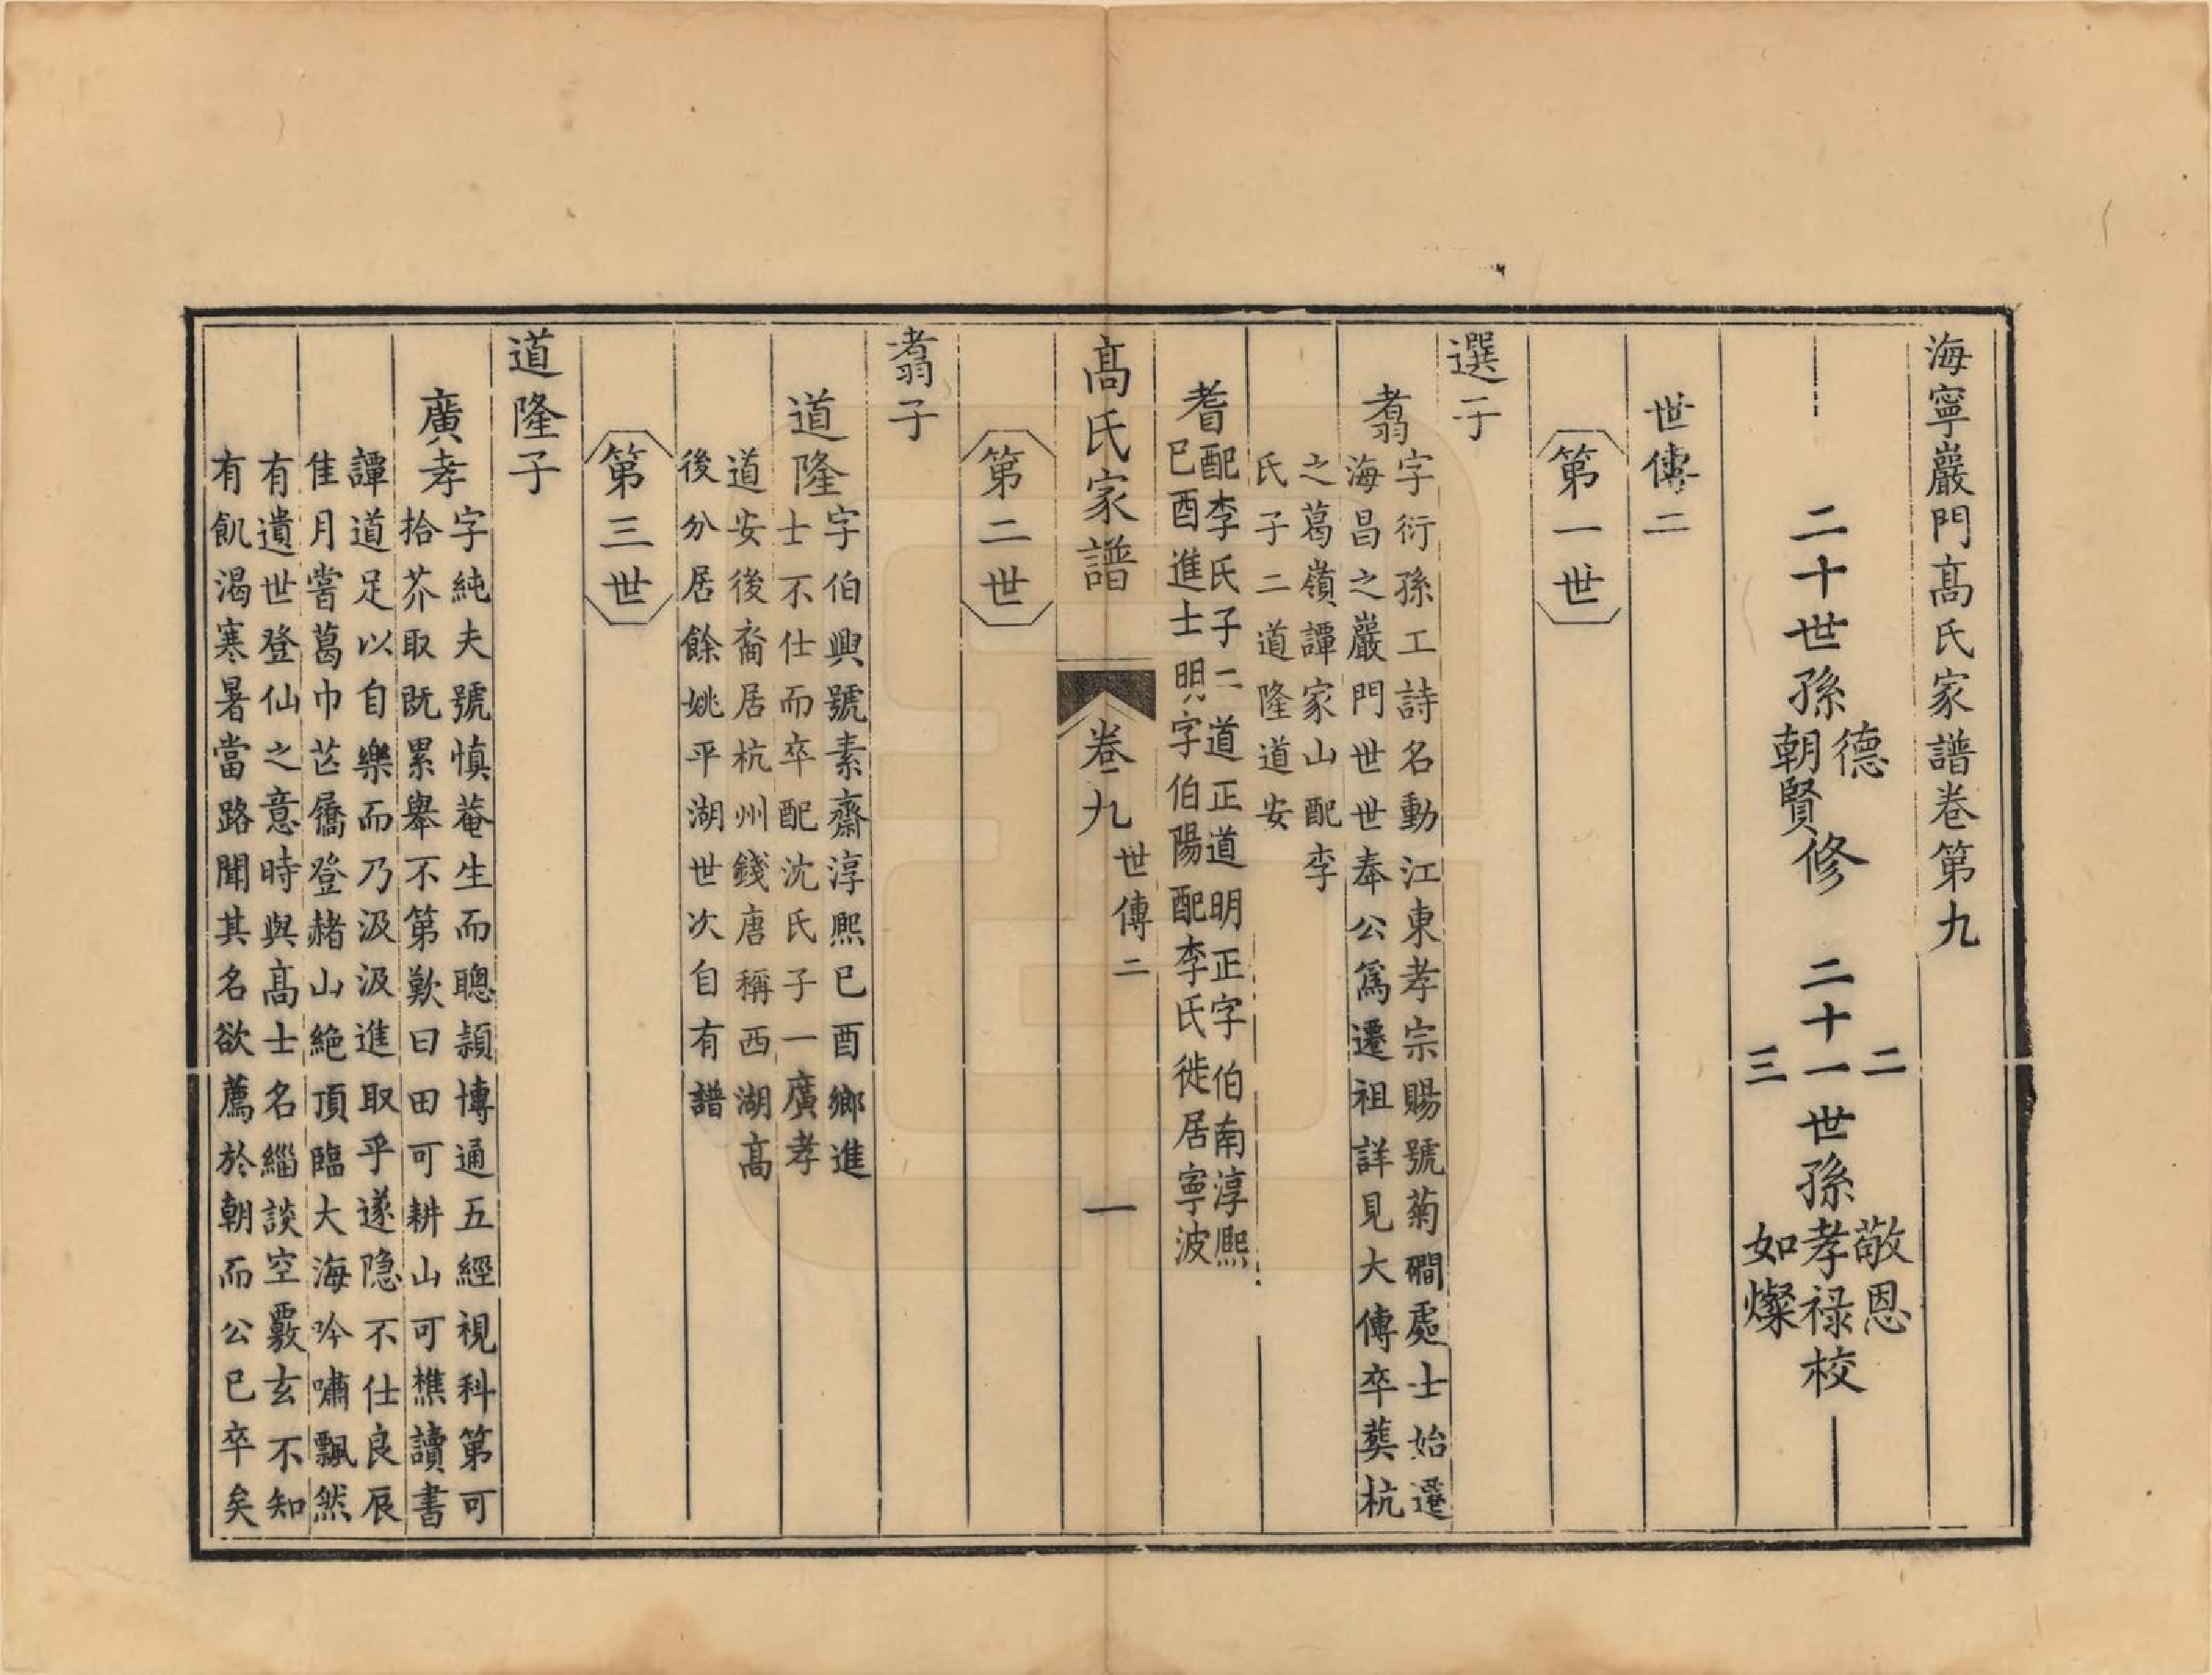 海寧巖門高氏家譜卷第九
二十世孫德朝賢修 二十一世孫敬恩孝祿如燦校
二 三
世傳二
第一世
選子
翥字衍孫工詩名動江東孝宗賜號菊磵處士始遷
海昌之巖門世世奉公為遷祖詳見大傳卒葬杭
之葛嶺譚家山配李
氏子二道隆道安
耆配李氏子二道正道明正字伯南淳熙
已酉進士明字伯陽配李氏徙居寧波
高氏家譜 卷九 世傳二 一
第二世
翥子
道隆字伯興號素齋淳熙已酉鄉進
士不仕而卒配沈氏子一廣孝
道安後裔居杭州錢唐稱西湖高
後分居餘姚平湖世次自有譜
第三世
道隆子
廣孝字純夫號慎菴生而聰穎博通五經視科第可
拾芥取既累舉不第歎曰田可耕山可樵讀書
譚道足以自樂而乃汲汲進取乎遂隱不仕良辰
佳月嘗葛巾芒屩登赭山絶頂臨大海吟嘯飄然
有遺世登仙之意時與高士名緇談空覈玄不知
有飢渴寒暑當路聞其名欲薦於朝而公已卒矣